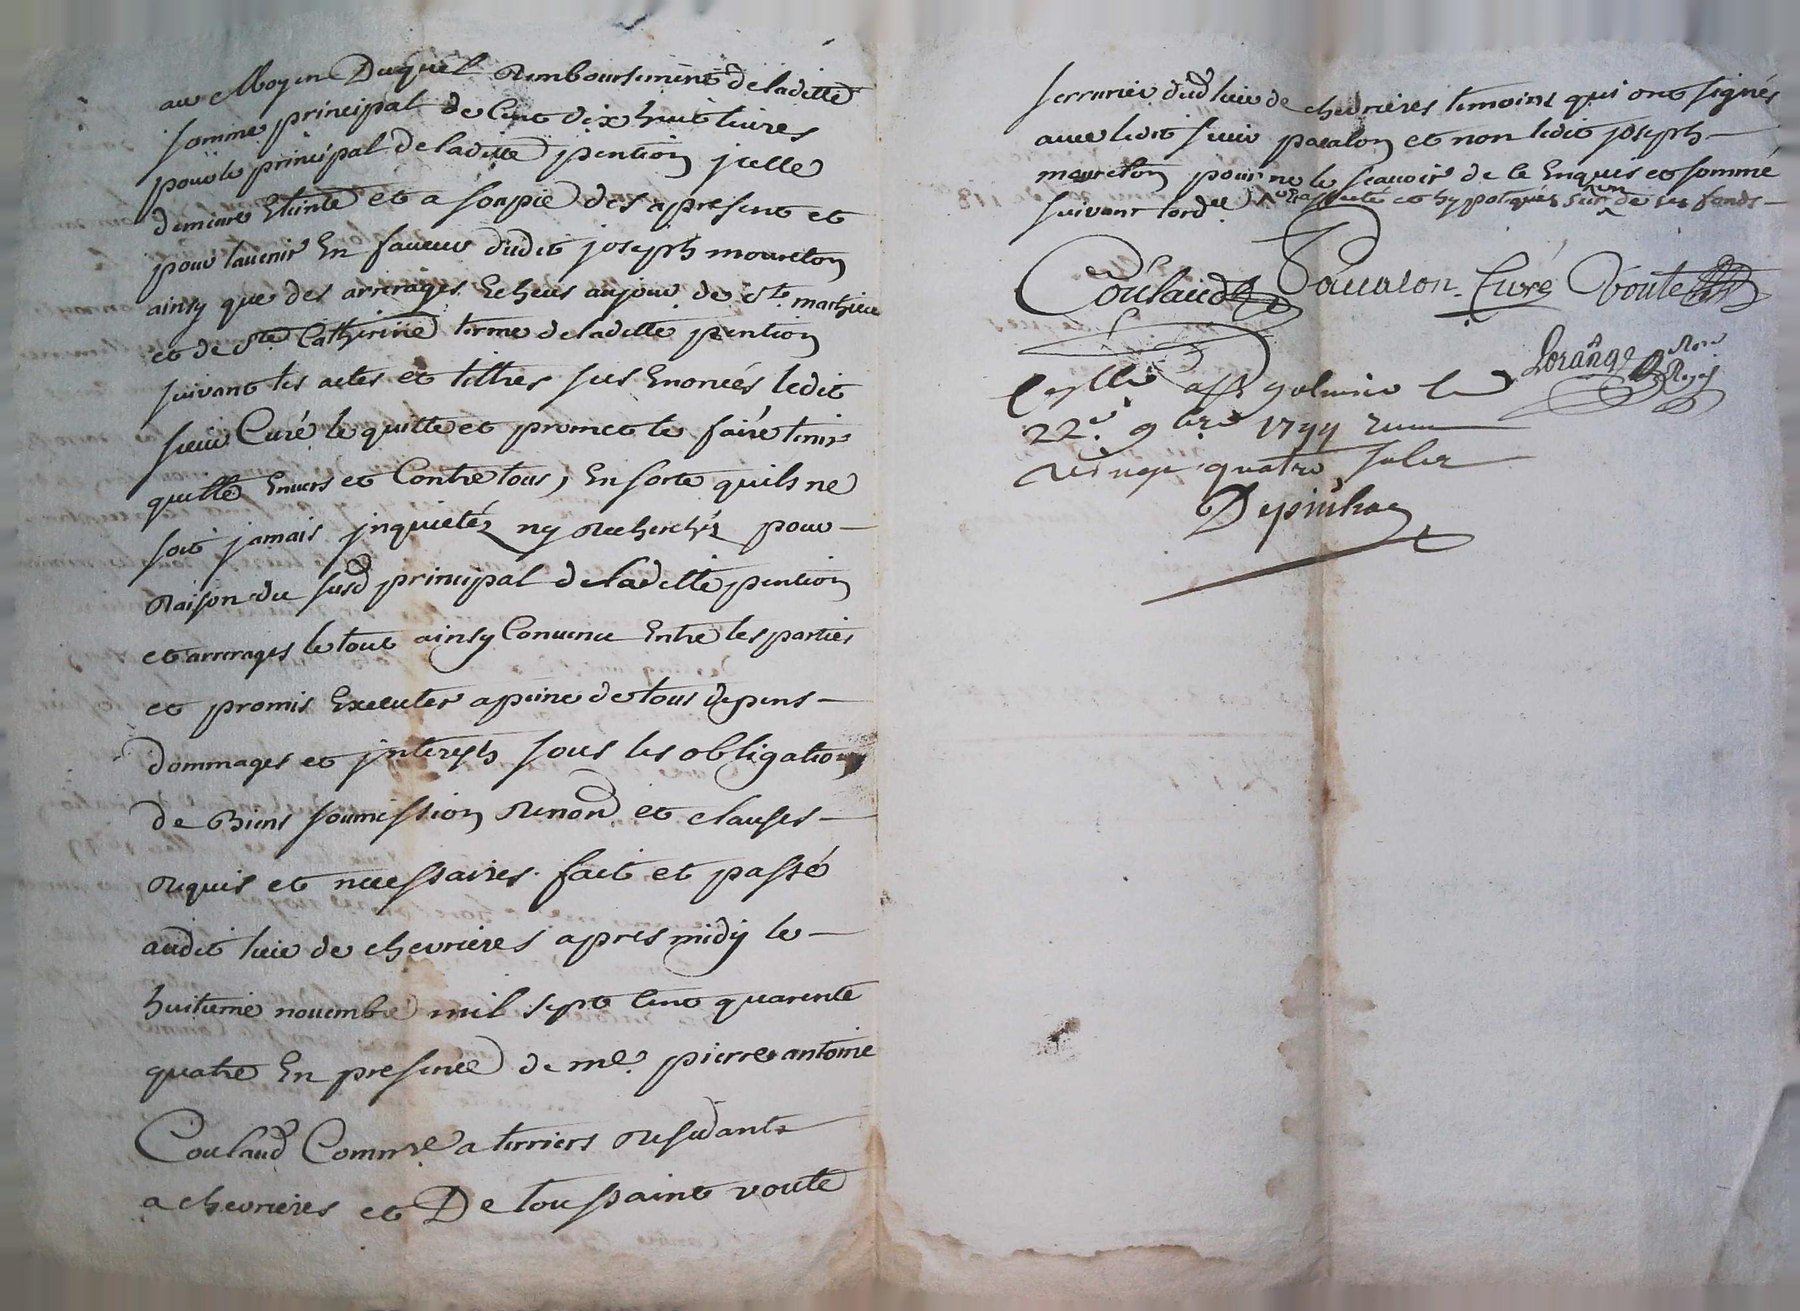 au Moyen Duquel Remboursement de laditte
somme principal de Cent dix huit livres
pour le principal de laditte pention jcelle
demeure Eteinte et a soapie des apresent et
pour lavenir En faveur dudit joseph mourelon
ainsy que des arrerages Echeus aujour de st. mathieu
et de Ste Catherine terme de laditte pention
suivant les actes et tiltres sus Enoncés ledit
sieur Curé le quitte et promet le faire tenir
quitte Envers et Contre tous, En sorte quils ne
soit jamais jnquietéz ny Recherchéz pour
Raison du susd principal de laditte pention
et arrerages le tout ainsy Convenu Entre les parties
et promis Executer apeine de tous depens
dommages et jnterests sous les obligations
de Biens soumission Renond et clauses
Requis et necessaires. fait et passé
audit lieu de chevrieres apres midy le
huitieme novembre mil sept Cent quarente
quatre En presence de me. pierre antoine
Coulaud Commre a terriers Residant
a chevrieres et De toussaint voute
serrurier dud lieu de chevrieres temoins qui ont signés
avec ledit sieur pavalon et non ledit joseph
mourelon pour ne le scavoir de ce Enquis et sommé
suivant lordce et hypotequés sur un de ses fonds
Coulaud Pavalon Curé Voute
Lorange Nore Royal
Conllé a St galmier le
22e. 9bre 1744 Recu
vingt quatre solz
Depinhac